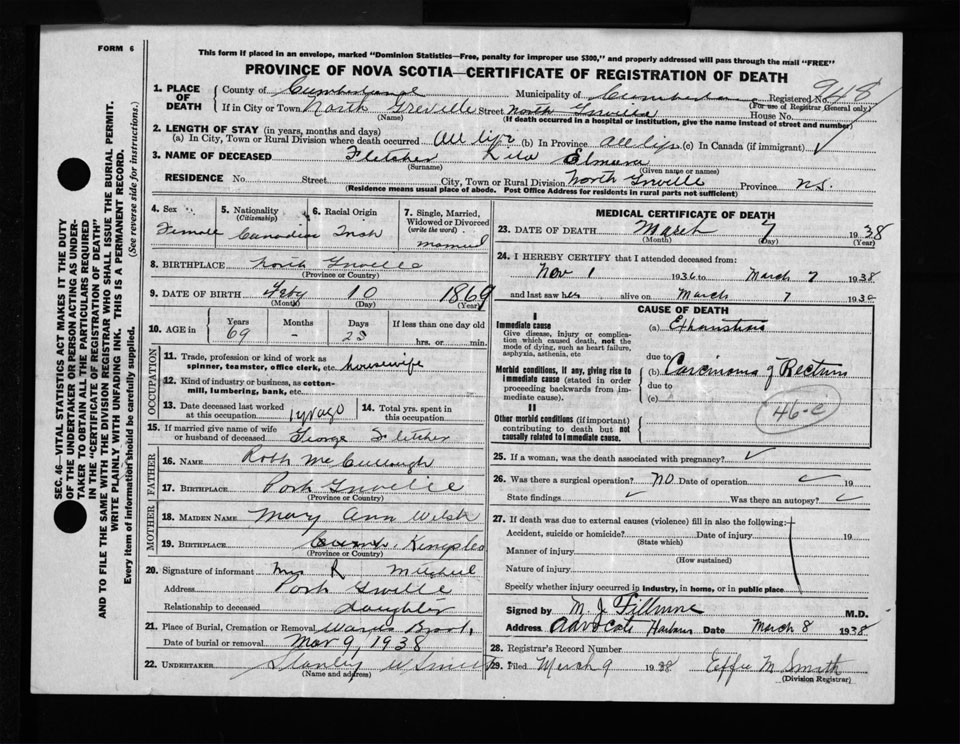 FORM 6
This form if placed in an envelope, marked "Dominion Statistics—Free, penalty for improper use $300," and properly addressed will pass through the mail "FREE"
PROVINCE OF NOVA SCOTIA—CERTIFICATE OF REGISTRATION OF DEATH
SEC. 46—VITAL STATISTICS ACT MAKES IT THE DUTY
OF THE UNDERTAKER OR PERSON ACTING AS UNDER-
TAKER TO OBTAIN ALL THE PARTICULARS REQUIRED
IN THE "CERTIFICATE OF REGISTRATION OF DEATH"
AND TO FILE THE SAME WITH THE DIVISION REGISTRAR WHO SHALL ISSUE THE BURIAL PERMIT.
WRITE PLAINLY WITH UNFADING INK. THIS IS A PERMANENT RECORD.
Every item of information should be carefully supplied. (See reverse side for instructions.)
1. PLACE OF DEATH
County of Cumberland Municipality of Cumberland Registered No. 948
(For use of Registrar General only)
If in City or Town North Greville Street North Greville House No.
(Name) (If death occurred in a hospital or institution, give the name instead of street and number)
2. LENGTH OF STAY (in years, months and days)
(a) In City, Town or Rural Division where death occurred All life (b) In Province All life (c) In Canada (if immigrant) ✓
3. NAME OF DECEASED Fletcher Lila Elmira
(Surname) (Given name or names)
RESIDENCE No. Street City, Town or Rural Division North Greville Province N.S.
(Residence means usual place of abode. Post Office Address for residents in rural parts not sufficient)
4. Sex Female
5. Nationality (Citizenship) Canadian
6. Racial Origin Irish
7. Single, Married, Widowed or Divorced (write the word) married
8. BIRTHPLACE North Greville
(Province or Country)
9. DATE OF BIRTH Feby 10 1869
(Month) (Day) (Year)
10. AGE in Years 69 Months - Days 23 If less than one day old hrs. or min.
OCCUPATION
11. Trade, profession or kind of work as spinner, teamster, office clerk, etc. housewife
12. Kind of industry or business, as cotton-mill, lumbering, bank, etc.
13. Date deceased last worked at this occupation 1 yr ago
14. Total yrs. spent in this occupation
15. If married give name of wife or husband of deceased George Fletcher
FATHER
16. NAME Robt McCullough
17. BIRTHPLACE Port Greville
(Province or Country)
MOTHER
18. MAIDEN NAME Mary Ann Welsh
19. BIRTHPLACE
(Province or Country)
20. Signature of informant Mrs R Mitchell
Address Port Greville
Relationship to deceased daughter
21. Place of Burial, Cremation or Removal Wards Brook
Date of burial or removal Mar 9, 1938
22. UNDERTAKER Stanley W Smith
(Name and address)
MEDICAL CERTIFICATE OF DEATH
23. DATE OF DEATH March 7 1938
(Month) (Day) (Year)
24. I HEREBY CERTIFY that I attended deceased from:
Nov 1 1936 to March 7 1938
and last saw her alive on March 7 1938
CAUSE OF DEATH
I
Immediate cause
Give disease, injury or complication which caused death, not the mode of dying, such as heart failure, asphyxia, asthenia, etc
(a) Exhaustion
due to
Morbid conditions, if any, giving rise to immediate cause (stated in order proceeding backwards from immediate cause).
(b) Carcinoma of Rectum
due to
(c)
46-c
II
Other morbid conditions (if important) contributing to death but not causally related to immediate cause.
25. If a woman, was the death associated with pregnancy? ✓
26. Was there a surgical operation? NO Date of operation ✓ 19
State findings ✓ Was there an autopsy? ✓
27. If death was due to external causes (violence) fill in also the following:
Accident, suicide or homicide? Date of injury 19
(State which)
Manner of injury
(How sustained)
Nature of injury
Specify whether injury occurred in industry, in home, or in public place
Signed by M. J. Fillmore M.D.
Address Advocate Harbour Date March 8 1938
28. Registrar's Record Number
29. Filed March 9 1938 Effie M Smith
(Division Registrar)